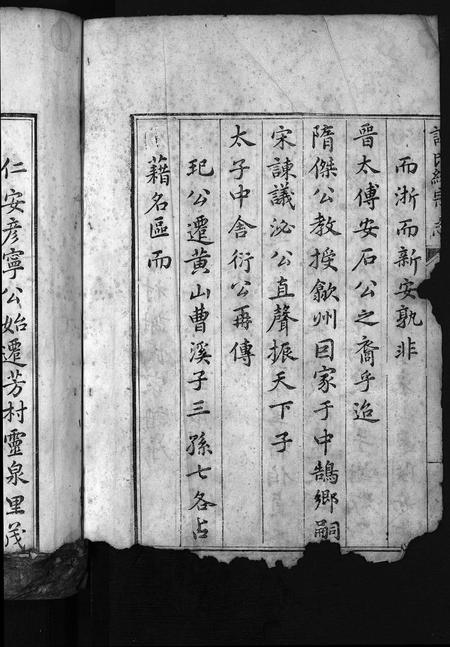 而浙而新安孰非
晋太傅安石公之裔乎迨
隋傑公教授歙州囙家于中鵠鄉嗣
宋諫議泌公直聲振天下子
太子中舍衍公再傳
玘公遷黄山曹溪子三孫七各占
藉名區而
仁安彦寧公始遷芳村靈泉里茂